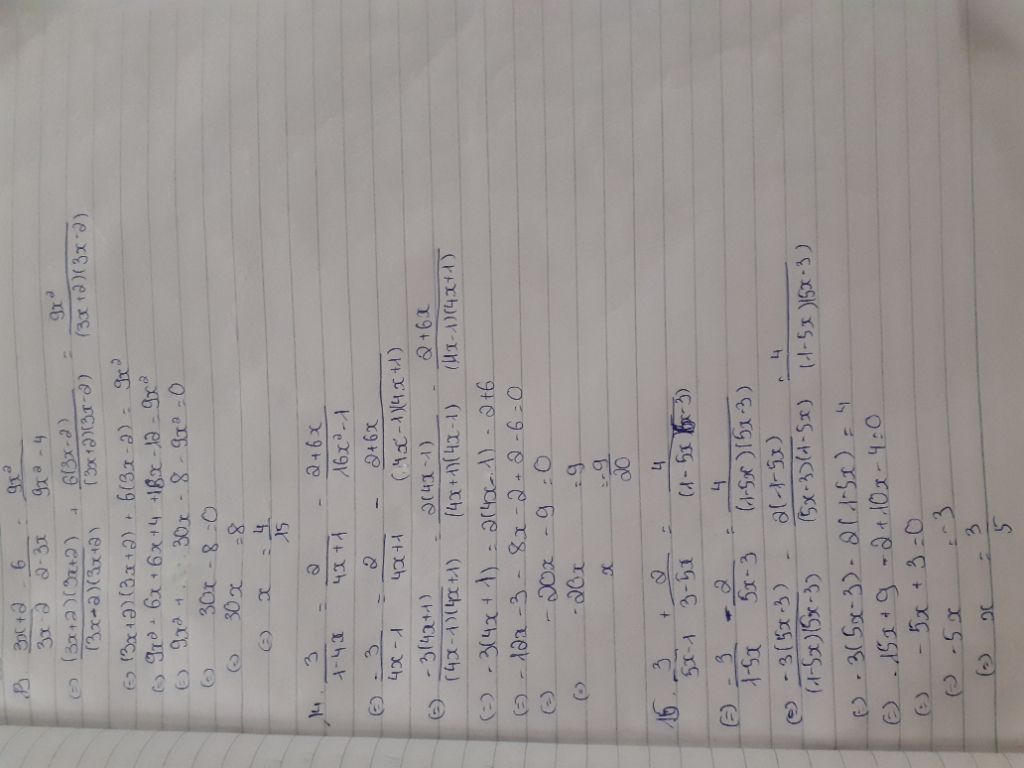 13 (3x+2)/(3x-2) - 6/(2-3x) = 9x²/(9x²-4)
(=) (3x+2)(3x+2)/(3x-2)(3x+2) + 6(3x-2)/(3x+2)(3x-2) = 9x²/(3x+2)(3x-2)
(=) (3x+2)(3x+2) + 6(3x-2) = 9x²
(=) 9x² + 6x + 6x + 4 + 18x - 12 = 9x²
(=) 9x² + 30x - 8 - 9x² = 0
(=) 30x - 8 = 0
(=) 30x = 8
(=) x = 4/15
14. 3/(1-4x) = 2/(4x+1) - (2+6x)/(16x²-1)
(=) -3/(4x-1) = 2/(4x+1) - (2+6x)/(4x-1)(4x+1)
(=) -3(4x+1)/(4x-1)(4x+1) = 2(4x-1)/(4x+1)(4x-1) - (2+6x)/(4x-1)(4x+1)
(=) -3(4x+1) = 2(4x-1) - 2+6
(=) -12x - 3 - 8x - 2 + 2 - 6 = 0
(=) -20x - 9 = 0
(=) -20x = 9
x = -9/20
15. 3/(5x-1) + 2/(3-5x) = 4/(1-5x)(5x-3)
(=) -3/(1-5x) - 2/(5x-3) = 4/(1-5x)(5x-3)
(=) -3(5x-3)/(1-5x)(5x-3) - 2(1-5x)/(5x-3)(1-5x) = 4/(1-5x)(5x-3)
(=) -3(5x-3) - 2(1-5x) = 4
(=) -15x + 9 - 2 + 10x - 4 = 0
(=) -5x + 3 = 0
(=) -5x = -3
(=) x = 3/5